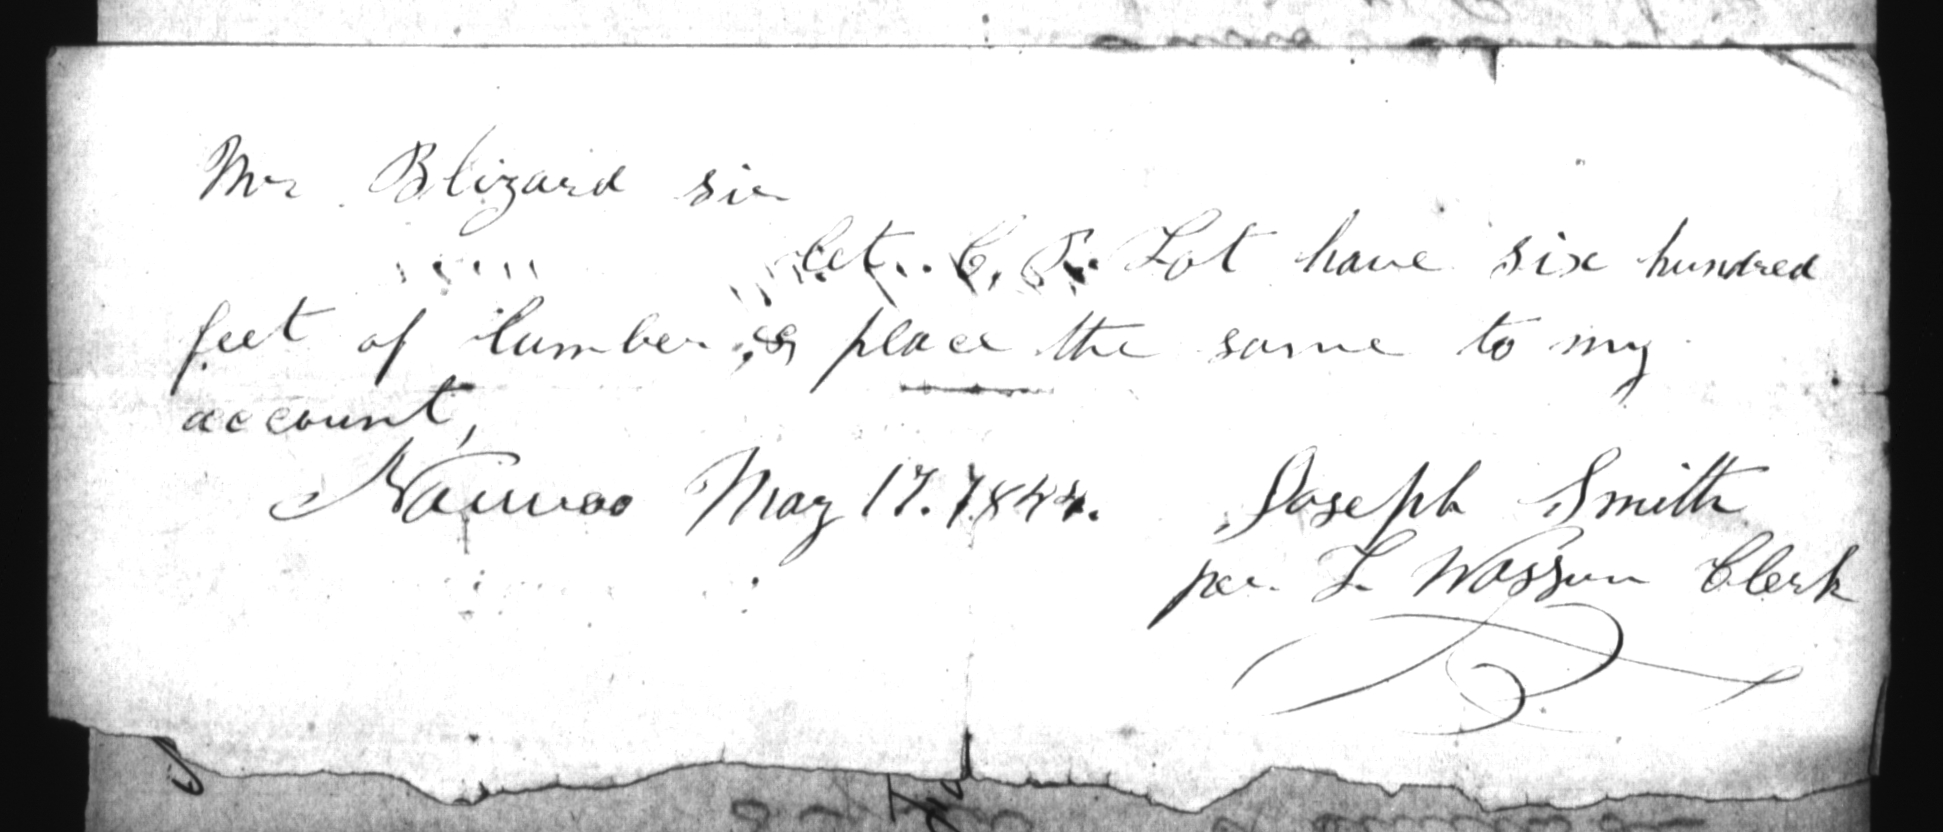 Mr Blizard sir
let. C. P. Lot have six hundred
feet of lumber, & place the same to my
account,
Nauvoo May 17. 1844. Joseph Smith
per. L Wasson Clerk